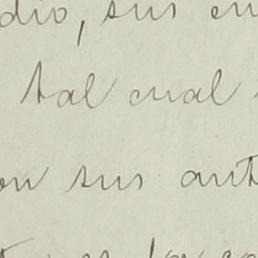 dio, sus en
tal cual
on sus ant